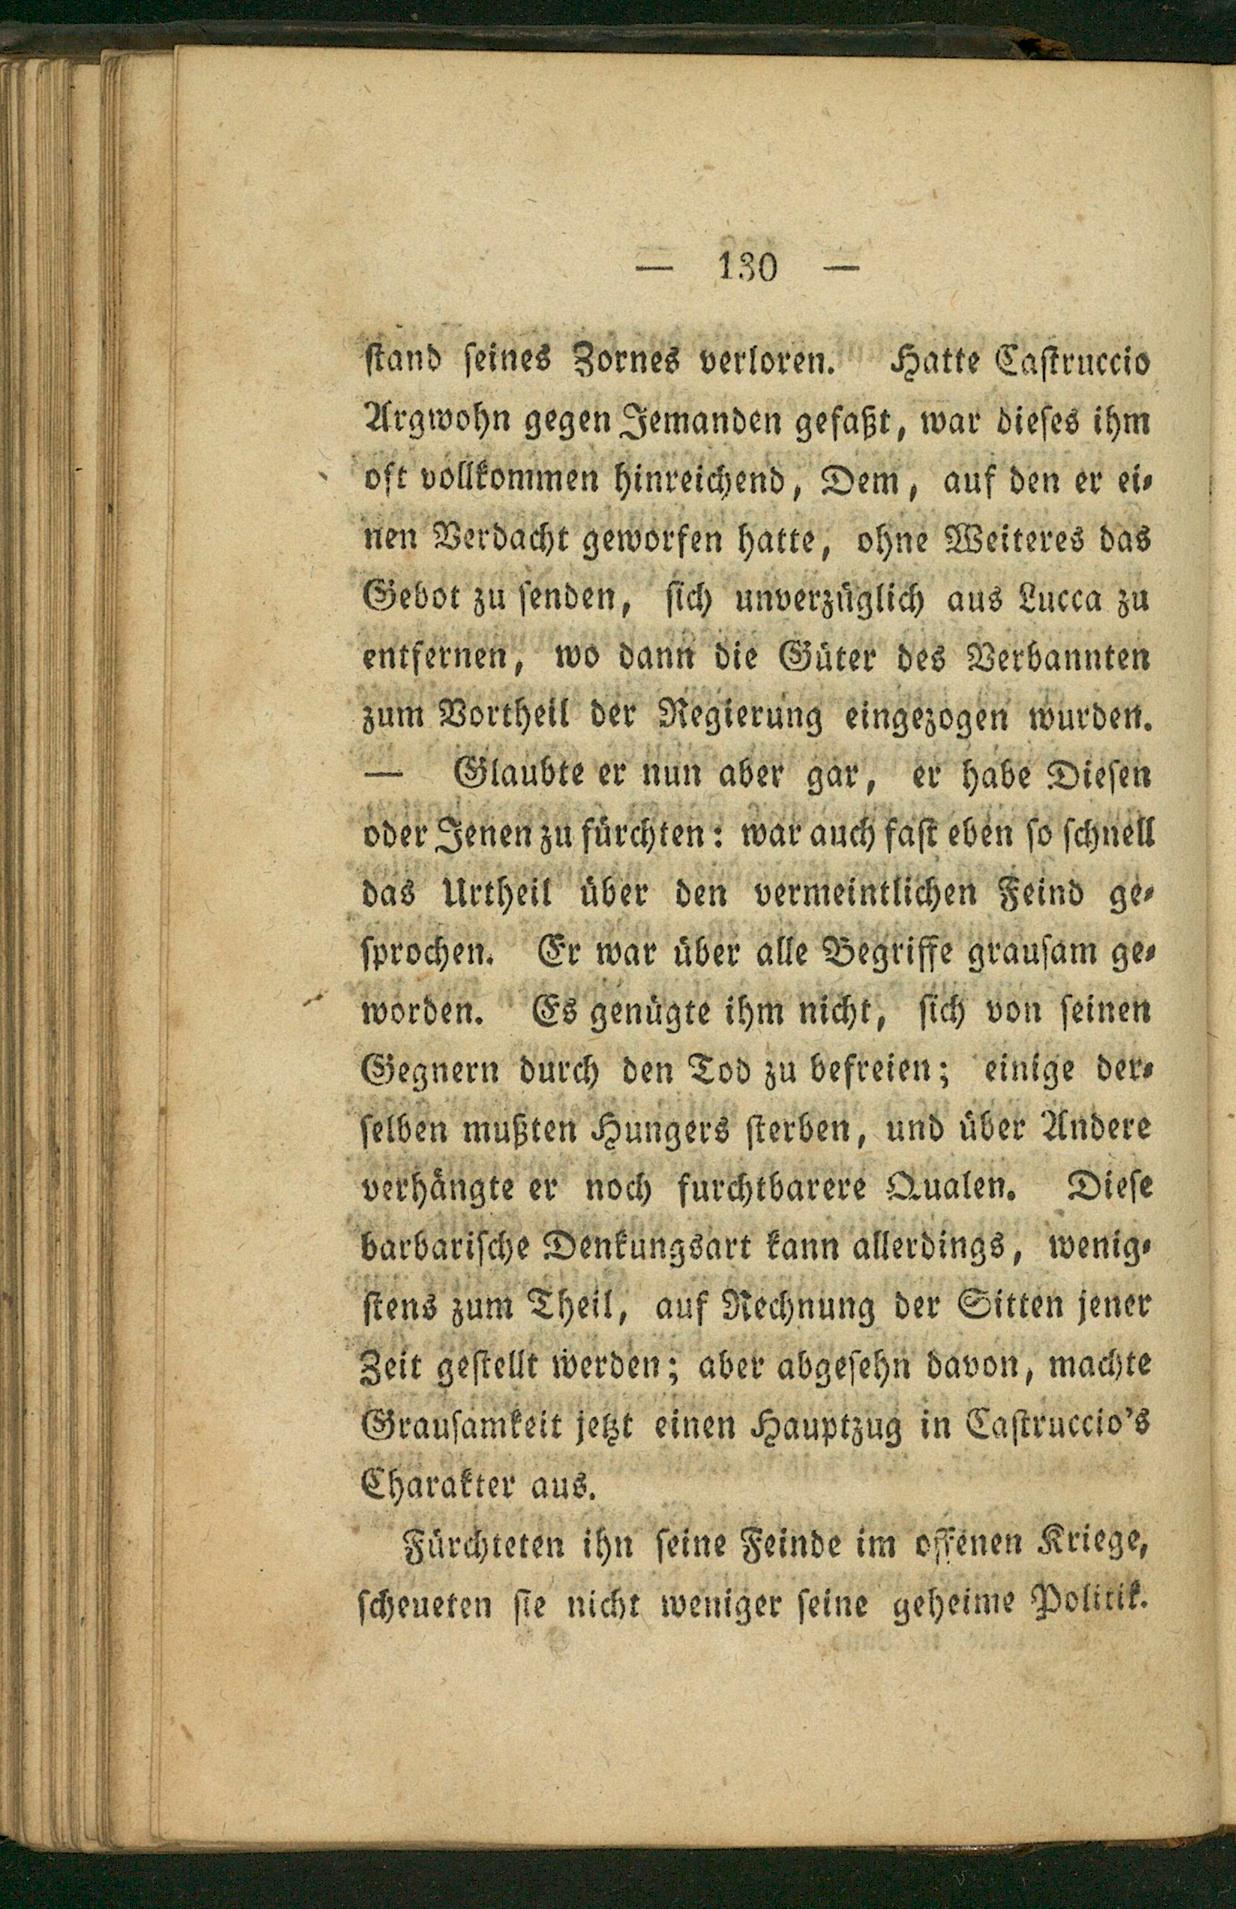 — 130 —
stand seines Zornes verloren. Hatte Castruccio
Argwohn gegen Jemanden gefaßt, war dieses ihm
oft vollkommen hinreichend, Dem, auf den er ei-
nen Verdacht geworfen hatte, ohne Weiteres das
Gebot zu senden, sich unverzüglich aus Lucca zu
entfernen, wo dann die Güter des Verbannten
zum Vortheil der Regierung eingezogen wurden.
— Glaubte er nun aber gar, er habe Diesen
oder Jenen zu fürchten: war auch fast eben so schnell
das Urtheil über den vermeintlichen Feind ge-
sprochen. Er war über alle Begriffe grausam ge-
worden. Es genügte ihm nicht, sich von seinen
Gegnern durch den Tod zu befreien; einige der-
selben mußten Hungers sterben, und über Andere
verhängte er noch furchtbarere Qualen. Diese
barbarische Denkungsart kann allerdings, wenig-
stens zum Theil, auf Rechnung der Sitten jener
Zeit gestellt werden; aber abgesehn davon, machte
Grausamkeit jetzt einen Hauptzug in Castruccio's
Charakter aus.
Fürchteten ihn seine Feinde im offenen Kriege,
scheueten sie nicht weniger seine geheime Politik.